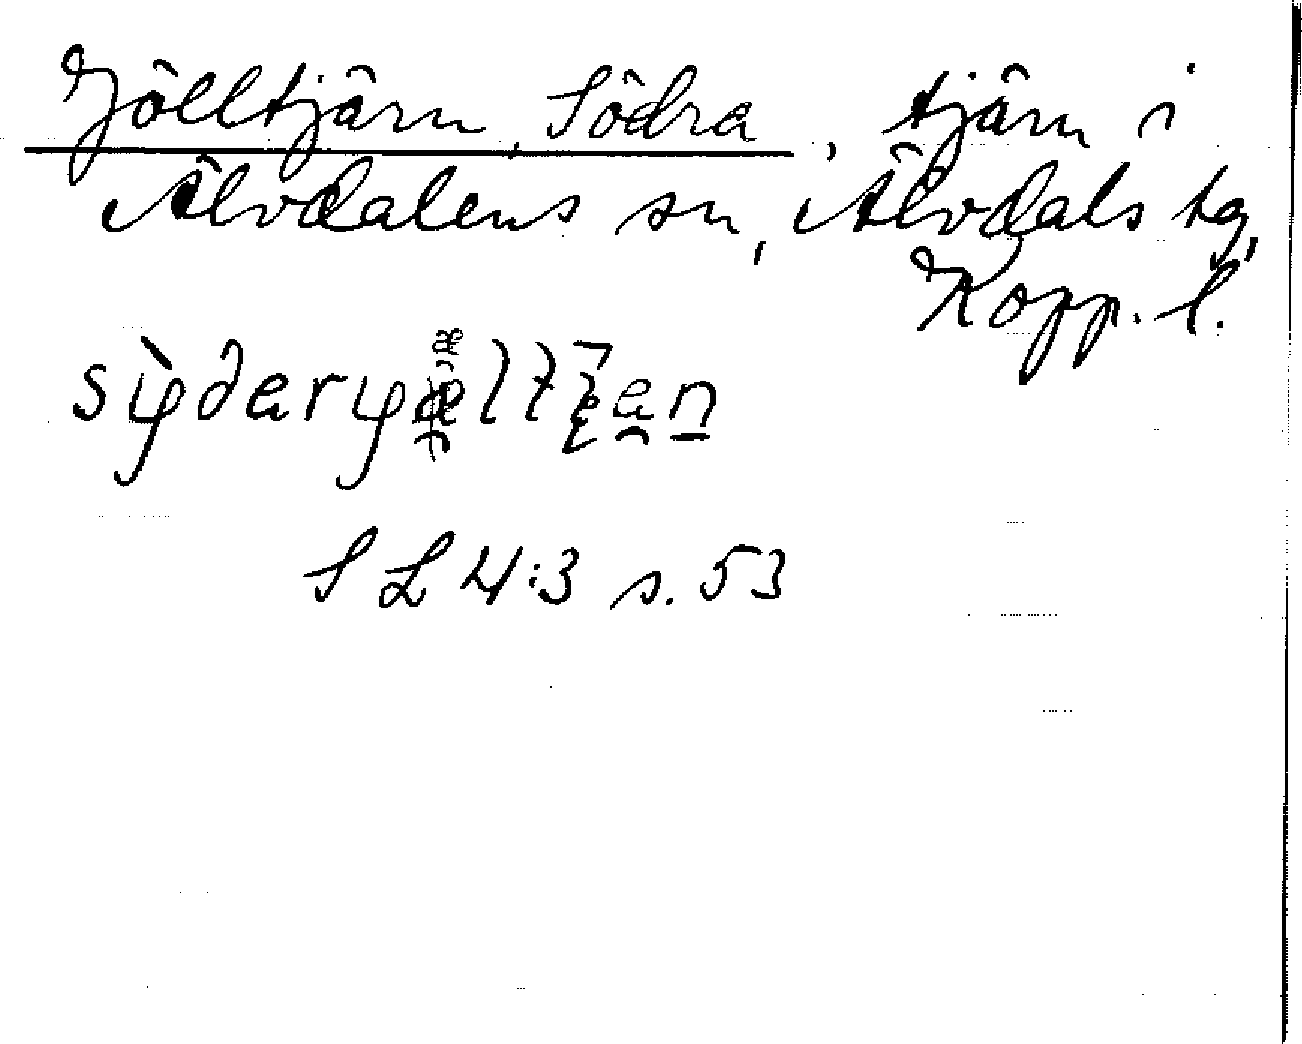 Jölltjärn, Södra, tjärn i
Älvdalens sn, Älvdals tg,
Kopp. l.
SL 4:3 s. 53